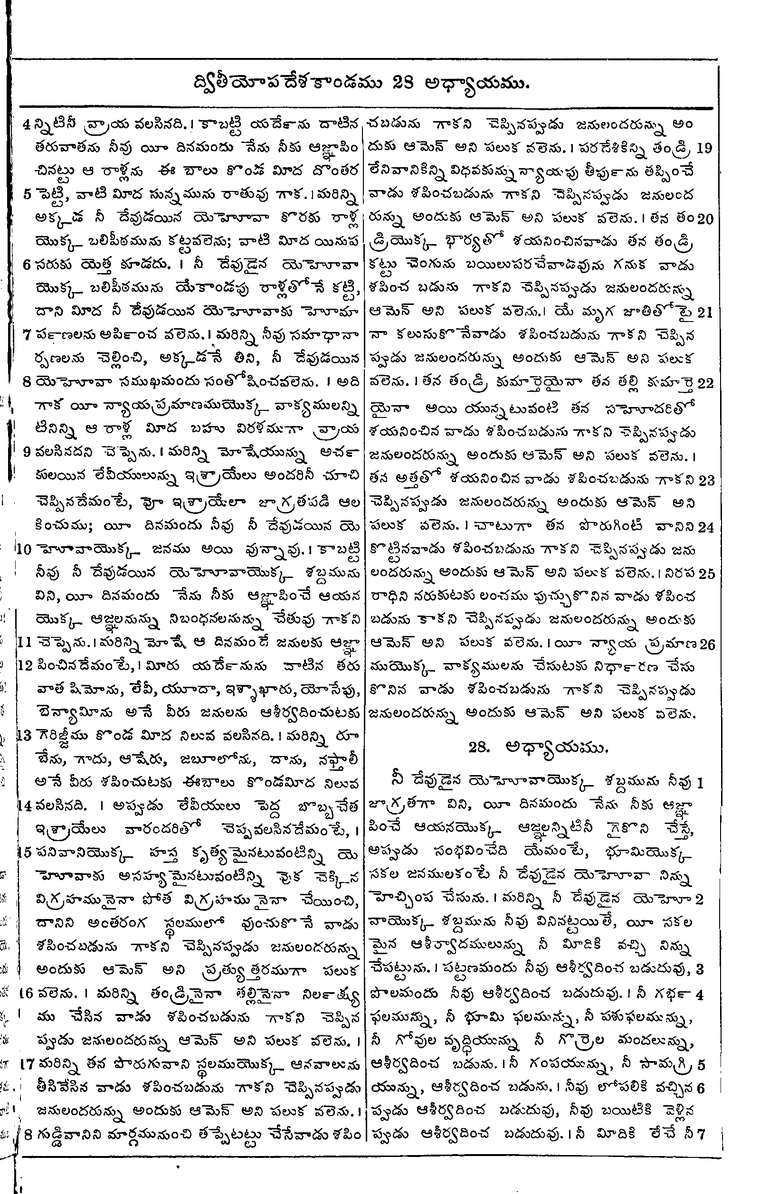 ద్వితీయోపదేశకాండము 28 అధ్యాయము.
4 న్నిటినీ వ్రాయ వలసినది. । కాబట్టి యర్దేనను దాటిన
తరువాతను నీవు యీ దినమందు నేను నీకు ఆజ్ఞాపిం
చినట్టు ఆ రాళ్లను ఈ బాలు కొండ మీద దొంతర
5 పెట్టి, వాటి మీద సున్నమును రాతువు గాక. । మరిన్ని
అక్కడ నీ దేవుడయిన యెహోవా కొరకు రాళ్ల
యొక్క బలిపీఠమును కట్టవలెను; వాటి మీద యినుప
6 సరుకు యెత్త కూడదు. । నీ దేవుడైన యెహోవా
యొక్క బలిపీఠమును యేకాండపు రాళ్లతోనే కట్టి,
దాని మీద నీ దేవుడయిన యెహోవాకు హోమా
7 ర్పణలను అర్పించ వలెను. । మరిన్ని నీవు సమాధానా
ర్పణలను చెల్లించి, అక్కడనే తిని, నీ దేవుడయిన
8 యెహోవా సముఖమందు సంతోషించవలెను. । అది
గాక యీ న్యాయప్రమాణముయొక్క వాక్యములన్ని
టినిన్ని ఆ రాళ్ల మీద బహు విరళముగా వ్రాయ
9 వలసినదని చెప్పెను. । మరిన్ని మోషేయున్ను అర్చ
కులయిన లేవీయులున్ను ఇశ్రాయేలు అందరినీ చూచి
చెప్పినదేమంటే, వో ఇశ్రాయేలా జాగ్రతపడి ఆల
కించుము; యీ దినమందు నీవు నీ దేవుడయిన యె
10 హోవాయొక్క జనము అయి వున్నావు. । కాబట్టి
నీవు నీ దేవుడయిన యెహోవాయొక్క శబ్దమును
విని, యీ దినమందు నేను నీకు ఆజ్ఞాపించే ఆయన
యొక్క ఆజ్ఞలనున్ను నిబంధనలనున్ను చేతువు గాకని
11 చెప్పెను. । మరిన్ని మోషే ఆ దినమందే జనులకు ఆజ్ఞా
12 పించినదేమంటే, । మీరు యర్దేనును దాటిన తరు
వాత షిమోను, లేవీ, యూదా, ఇశ్శాఖారు, యోసేపు,
బెన్యామీను అనే వీరు జనులను ఆశీర్వదించుటకు
13 గెరిజ్జీము కొండ మీద నిలువ వలసినది. । మరిన్ని రూ
బేను, గాదు, ఆషేరు, జబూలోను, దాను, నఫ్తాలీ
అనే వీరు శపించుటకు ఈబాలు కొండమీద నిలువ
14 వలసినది. । అప్పుడు లేవీయులు పెద్ద బొబ్బచేత
ఇశ్రాయేలు వారందరితో చెప్పవలసినదేమంటే, ।
15 పనివానియొక్క హస్త కృత్యమైనటువంటిన్ని యె
హోవాకు అసహ్యమైనటువంటిన్ని వైక చెక్కిన
విగ్రహమునైనా పోత విగ్రహమునైనా చేయించి,
దానిని అంతరంగ స్థలములో వుంచుకొనే వాడు
శపించబడును గాకని చెప్పినప్పుడు జనులందరున్ను
అందుకు ఆమెన్ అని ప్రత్యుత్తరముగా పలుక
16 వలెను. । మరిన్ని తండ్రినైనా తల్లినైనా నిర్లక్ష్య
ము చేసిన వాడు శపించబడును గాకని చెప్పిన
ప్పుడు జనులందరున్ను ఆమెన్ అని పలుక వలెను. ।
17 మరిన్ని తన పొరుగువాని స్థలముయొక్క ఆనవాలును
తీసివేసిన వాడు శపించబడును గాకని చెప్పినప్పుడు
జనులందరున్ను అందుకు ఆమెన్ అని పలుక వలెను. ।
8 గుడ్డివానిని మార్గమునుంచి తప్పేటట్టు చేసేవాడు శపిం
చబడును గాకని చెప్పినప్పుడు జనులందరున్ను అం
దుకు ఆమెన్ అని పలుక వలెను. । పరదేశికిన్ని తండ్రి 19
లేనివానికిన్ని విధవకున్ను న్యాయపు తీర్పును తప్పించే
వాడు శపించబడును గాకని చెప్పినప్పుడు జనులంద
రున్ను అందుకు ఆమెన్ అని పలుక వలెను. । తన తం 20
డ్రియొక్క భార్యతో శయనించినవాడు తన తండ్రి
కట్టు చెంగును బయిలుపరచేవాడవును గనుక వాడు
శపించ బడును గాకని చెప్పినప్పుడు జనులందరున్ను
ఆమెన్ అని పలుక వలెను. । యే మృగ జాతితోటై 21
నా కలుసుకొనేవాడు శపించబడును గాకని చెప్పిన
ప్పుడు జనులందరున్ను అందుకు ఆమెన్ అని పలుక
వలెను. । తన తండ్రి కుమార్తెయైనా తన తల్లి కుమార్తె 22
యైనా అయి యున్నటువంటి తన సహోదరితో
శయనించిన వాడు శపించబడును గాకని చెప్పినప్పుడు
జనులందరున్ను అందుకు ఆమెన్ అని పలుక వలెను. ।
తన అత్తతో శయనించిన వాడు శపించబడును గాకని 23
చెప్పినప్పుడు జనులందరున్ను అందుకు ఆమెన్ అని
పలుక వలెను. । చాటుగా తన పొరుగింటి వానిని 24
కొట్టినవాడు శపించబడును గాకని చెప్పినప్పుడు జను
లందరున్ను అందుకు ఆమెన్ అని పలుక వలెను. । నిరప 25
రాధిని నరుకుటకు లంచము పుచ్చుకొనిన వాడు శపించ
బడును కాకని చెప్పినప్పుడు జనులందరున్ను అందుకు
ఆమెన్ అని పలుక వలెను. । యీ న్యాయ ప్రమాణ 26
ముయొక్క వాక్యములను చేసుటకు నిర్ధారణ చేసు
కొనిన వాడు శపించబడును గాకని చెప్పినప్పుడు
జనులందరున్ను అందుకు ఆమెన్ అని పలుక వలెను.
28. అధ్యాయము.
నీ దేవుడైన యెహోవాయొక్క శబ్దమును నీవు 1
జాగ్రతగా విని, యీ దినమందు నేను నీకు ఆజ్ఞా
పించే ఆయనయొక్క ఆజ్ఞలన్నిటినీ గైకొని చేస్తే,
అప్పుడు సంభవించేది యేమంటే, భూమియొక్క
సకల జనములకంటే నీ దేవుడైన యెహోవా నిన్ను
హెచ్చింప చేసును. । మరిన్ని నీ దేవుడైన యెహో 2
వాయొక్క శబ్దమును నీవు వినినట్టయితే, యీ సకల
మైన ఆశీర్వాదములున్ను నీ మీదికి వచ్చి నిన్ను
చేపట్టును. । పట్టణమందు నీవు ఆశీర్వదించ బడుదువు, 3
పొలమందు నీవు ఆశీర్వదించ బడుదువు. । నీ గర్భ 4
ఫలమున్ను, నీ భూమి ఫలమున్ను, నీ పశుఫలమున్ను,
నీ గోవుల వృద్ధియున్ను నీ గొర్రెల మందలున్ను,
ఆశీర్వదించ బడును. । నీ గంపయున్ను, నీ సామగ్రి 5
యున్ను, ఆశీర్వదించ బడును. । నీవు లోపలికి వచ్చిన 6
ప్పుడు ఆశీర్వదించ బడుదువు, నీవు బయిటికి వెళ్లిన
ప్పుడు ఆశీర్వదించ బడుదువు. । నీ మీదికి లేచే నీ 7